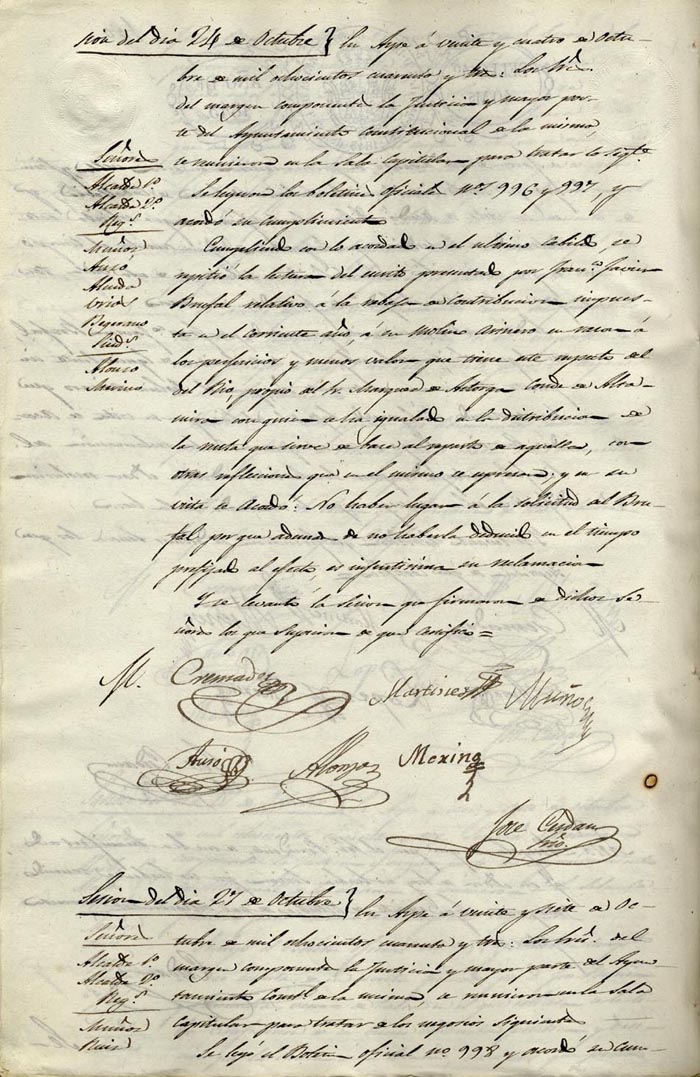 sion del dia 24 de Octubre } En Aspe á veinte y cuatro de Octu-
bre de mil ochocientos cuarenta y tres: Los Sres.
del margen componentes la Justicia y mayor par-
te del Ayuntamiento Constitucional de la misma,
se reunieron en la Sala Capitular para tratar lo sigte.
Señores
Alcalde 1º
Alcalde 2º
Regs.
Muñoz
Ausó
Almida
Urios
Bejerano
Sínds.
Alonso
Merino
Se leyeron los boletines oficiales nos. 996 y 997, y
acordó su cumplimiento
Cumpliendo con lo acordado en el ultimo Cabildo, se
repitió la lectura del escrito presentado por Franco. Javier
Brufal relativo á la rebaja de Contribucion impues-
ta en el corriente año, á su Molino Arinero en razon á
los perjuicios y menos valor que tiene este respecto del
del Rio, propio del Sr. Marques de Astorga Conde de Alta-
mira con quien se ha igualado en la distribucion de
la renta que sirve de base al reparto de aquella, con
otras reflexiones que en el mismo se espresan: y en su
vista se Acordó: No haber lugar á la solicitud del Bru-
fal por que ademas de no haberla deducido en el tiempo
prefijado al efecto, es infertisima su reclamacion
Y se levantó la sesion que firmaron de dichos Se-
ñores los que supieron de que certifico =
M. Cremades
Martinez
Muñoz
Ausó
Alonso
Merino
José Cerdan
Srio.
Sesion del dia 27 de Octubre } En Aspe á veinte y siete de Oc-
tubre de mil ochocientos cuarenta y tres: Los Sres. del
margen componentes la Justicia y mayor parte del Ayun-
tamiento Constl. de la misma, se reunieron en la Sala
Capitular para tratar de los negocios siguientes
Señores
Alcalde 1º
Alcalde 2º
Regs.
Muñoz
Ruiz
Se leyó el Boletin oficial nº 998 y acordó su cum-